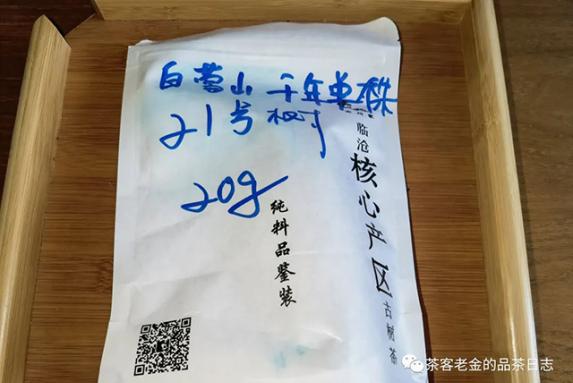 白莺山 千年单株
21号树
20g
临沧核心产区古树茶
纯料品鉴装
茶客老金的品茶日志